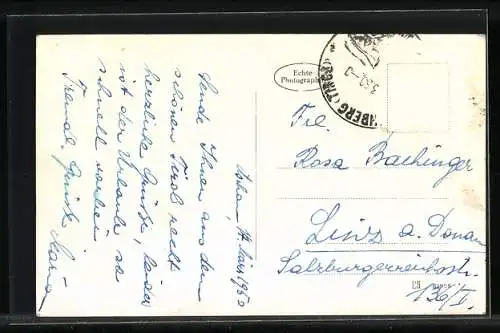 17. März 1950
Sende Ihnen aus dem
schönen Tirol recht
herzliche Grüße, leider
ist der Urlaub so
schnell vorbei
Freundl. Grüße
Maria
Echte
Photographie
BERG (TIROL)
Frl.
Rosa Bachinger
Linz a. Donau
Salzburgerreichsstr.
136/I